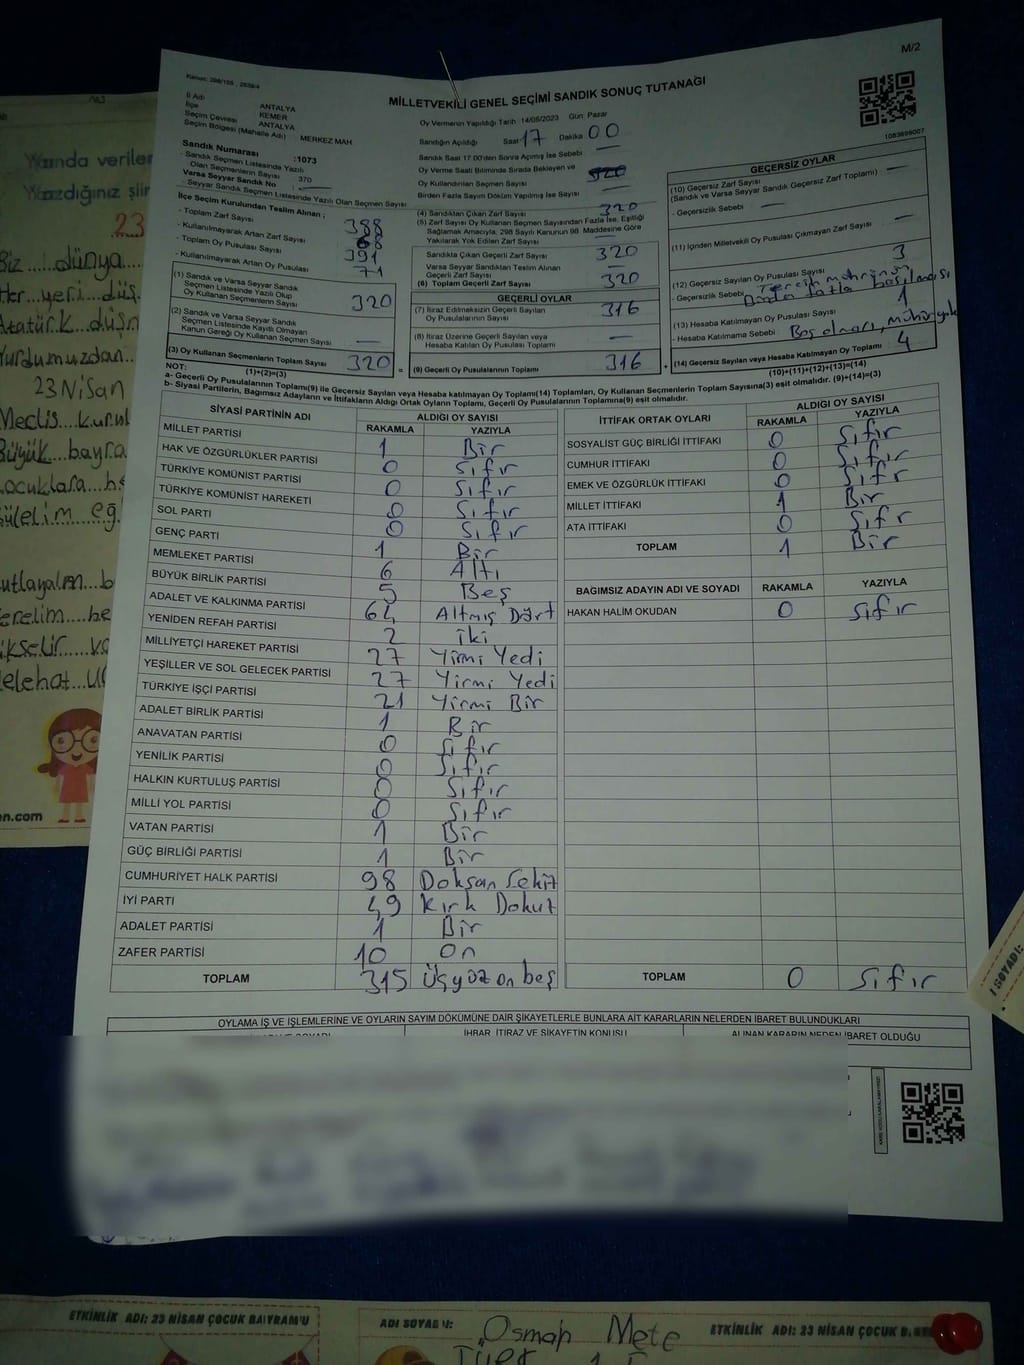 M/2
Kanun: 298/105 , 2839/4
MİLLETVEKİLİ GENEL SEÇİMİ SANDIK SONUÇ TUTANAĞI
1083699007
İl Adı ANTALYA
İlçe KEMER
Seçim Çevresi ANTALYA
Seçim Bölgesi (Mahalle Adı) MERKEZ MAH
Sandık Numarası :1073
- Sandık Seçmen Listesinde Yazılı
Olan Seçmenlerin Sayısı 370
Varsa Seyyar Sandık No :
- Seyyar Sandık Seçmen Listesinde Yazılı Olan Seçmen Sayısı
İlçe Seçim Kurulundan Teslim Alınan ;
- Toplam Zarf Sayısı 388
- Kullanılmayarak Artan Zarf Sayısı 68
- Toplam Oy Pusulası Sayısı 391
- Kullanılmayarak Artan Oy Pusulası 71
(1) Sandık ve Varsa Seyyar Sandık
Seçmen Listesinde Yazılı Olup
Oy Kullanan Seçmenlerin Sayısı 320
(2) Sandık ve Varsa Seyyar Sandık
Seçmen Listesinde Kayıtlı Olmayan
Kanun Gereği Oy Kullanan Seçmen Sayısı —
(3) Oy Kullanan Seçmenlerin Toplam Sayısı 320 =
(1)+(2)=(3)
Oy Vermenin Yapıldığı Tarih 14/05/2023 Gün: Pazar
Sandığın Açıldığı Saat 17 Dakika 00
Sandık Saat 17:00'den Sonra Açılmış İse Sebebi —
Oy Verme Saati Bitiminde Sırada Bekleyen ve
Oy Kullandırılan Seçmen Sayısı
Birden Fazla Sayım Döküm Yapılmış İse Sayısı —
(4) Sandıktan Çıkan Zarf Sayısı 320
(5) Zarf Sayısı Oy Kullanan Seçmen Sayısından Fazla ise, Eşitliği
Sağlamak Amacıyla, 298 Sayılı Kanunun 98. Maddesine Göre
Yakılarak Yok Edilen Zarf Sayısı —
Sandıkta Çıkan Geçerli Zarf Sayısı 320
Varsa Seyyar Sandıktan Teslim Alınan
Geçerli Zarf Sayısı —
(6) Toplam Geçerli Zarf Sayısı 320
GEÇERLİ OYLAR
(7) İtiraz Edilmeksizin Geçerli Sayılan
Oy Pusulalarının Sayısı 316
(8) İtiraz Üzerine Geçerli Sayılan veya
Hesaba Katılan Oy Pusulası Toplamı —
(9) Geçerli Oy Pusulalarının Toplamı 316 +
GEÇERSİZ OYLAR
(10) Geçersiz Zarf Sayısı
(Sandık ve Varsa Seyyar Sandık Geçersiz Zarf Toplamı) —
- Geçersizlik Sebebi —
(11) İçinden Milletvekili Oy Pusulası Çıkmayan Zarf Sayısı —
(12) Geçersiz Sayılan Oy Pusulası Sayısı 3
- Geçersizlik Sebebi Tercih mührünün
fazla basılması
(13) Hesaba Katılmayan Oy Pusulası Sayısı 1
- Hesaba Katılmama Sebebi Boş olması, mühür yok
(14) Geçersiz Sayılan veya Hesaba Katılmayan Oy Toplamı 4
(10)+(11)+(12)+(13)=(14)
NOT:
a- Geçerli Oy Pusulalarının Toplamı(9) ile Geçersiz Sayılan veya Hesaba katılmayan Oy Toplamı(14) Toplamları, Oy Kullanan Seçmenlerin Toplam Sayısına(3) eşit olmalıdır. (9)+(14)=(3)
b- Siyasi Partilerin, Bağımsız Adayların ve İttifakların Aldığı Ortak Oyların Toplamı, Geçerli Oy Pusulalarının Toplamına(9) eşit olmalıdır.
SİYASİ PARTİNİN ADI ALDIĞI OY SAYISI
RAKAMLA YAZIYLA
MİLLET PARTİSİ 1 Bir
HAK VE ÖZGÜRLÜKLER PARTİSİ 0 Sıfır
TÜRKİYE KOMÜNİST PARTİSİ 0 Sıfır
TÜRKİYE KOMÜNİST HAREKETİ 0 Sıfır
SOL PARTİ 0 Sıfır
GENÇ PARTİ 1 Bir
MEMLEKET PARTİSİ 6 Altı
BÜYÜK BİRLİK PARTİSİ 5 Beş
ADALET VE KALKINMA PARTİSİ 64 Altmış Dört
YENİDEN REFAH PARTİSİ 2 İki
MİLLİYETÇİ HAREKET PARTİSİ 27 Yirmi Yedi
YEŞİLLER VE SOL GELECEK PARTİSİ 27 Yirmi Yedi
TÜRKİYE İŞÇİ PARTİSİ 21 Yirmi Bir
ADALET BİRLİK PARTİSİ 1 Bir
ANAVATAN PARTİSİ 0 Sıfır
YENİLİK PARTİSİ 0 Sıfır
HALKIN KURTULUŞ PARTİSİ 0 Sıfır
MİLLİ YOL PARTİSİ 0 Sıfır
VATAN PARTİSİ 1 Bir
GÜÇ BİRLİĞİ PARTİSİ 1 Bir
CUMHURİYET HALK PARTİSİ 98 Doksan Sekiz
İYİ PARTİ 49 Kırk Dokuz
ADALET PARTİSİ 1 Bir
ZAFER PARTİSİ 10 On
TOPLAM 315 Üçyüz on beş
İTTİFAK ORTAK OYLARI ALDIĞI OY SAYISI
RAKAMLA YAZIYLA
SOSYALİST GÜÇ BİRLİĞİ İTTİFAKI 0 Sıfır
CUMHUR İTTİFAKI 0 Sıfır
EMEK VE ÖZGÜRLÜK İTTİFAKI 0 Sıfır
MİLLET İTTİFAKI 1 Bir
ATA İTTİFAKI 0 Sıfır
TOPLAM 1 Bir
BAĞIMSIZ ADAYIN ADI VE SOYADI RAKAMLA YAZIYLA
HAKAN HALİM OKUDAN 0 Sıfır
TOPLAM 0 Sıfır
OYLAMA İŞ VE İŞLEMLERİNE VE OYLARIN SAYIM DÖKÜMÜNE DAİR ŞİKAYETLERLE BUNLARA AİT KARARLARIN NELERDEN İBARET BULUNDUKLARI
İHBAR, İTİRAZ VE ŞİKAYETİN KONUSU ALINAN KARARIN NEDEN İBARET OLDUĞU
Yanda verilen
Yazdığınız şiir
23
Biz....dünya
Her...yeri...düş
Atatürk...düşn
Yurdumuzdan..
23 Nisan
Meclis...kurul
Büyük...bayra
Çocuklara...he
Gülelim eg.
kutlayalım...b
erelim....be
ükselir...va
elehat...
en.com
I SOYADI:
ETKİNLİK ADI: 23 NİSAN ÇOCUK BAYRAMI
ADI SOYADI: Osman Mete
ETKİNLİK ADI: 23 NİSAN ÇOCUK B